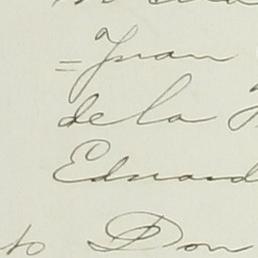 =Juan
de la
Eduard
to Don